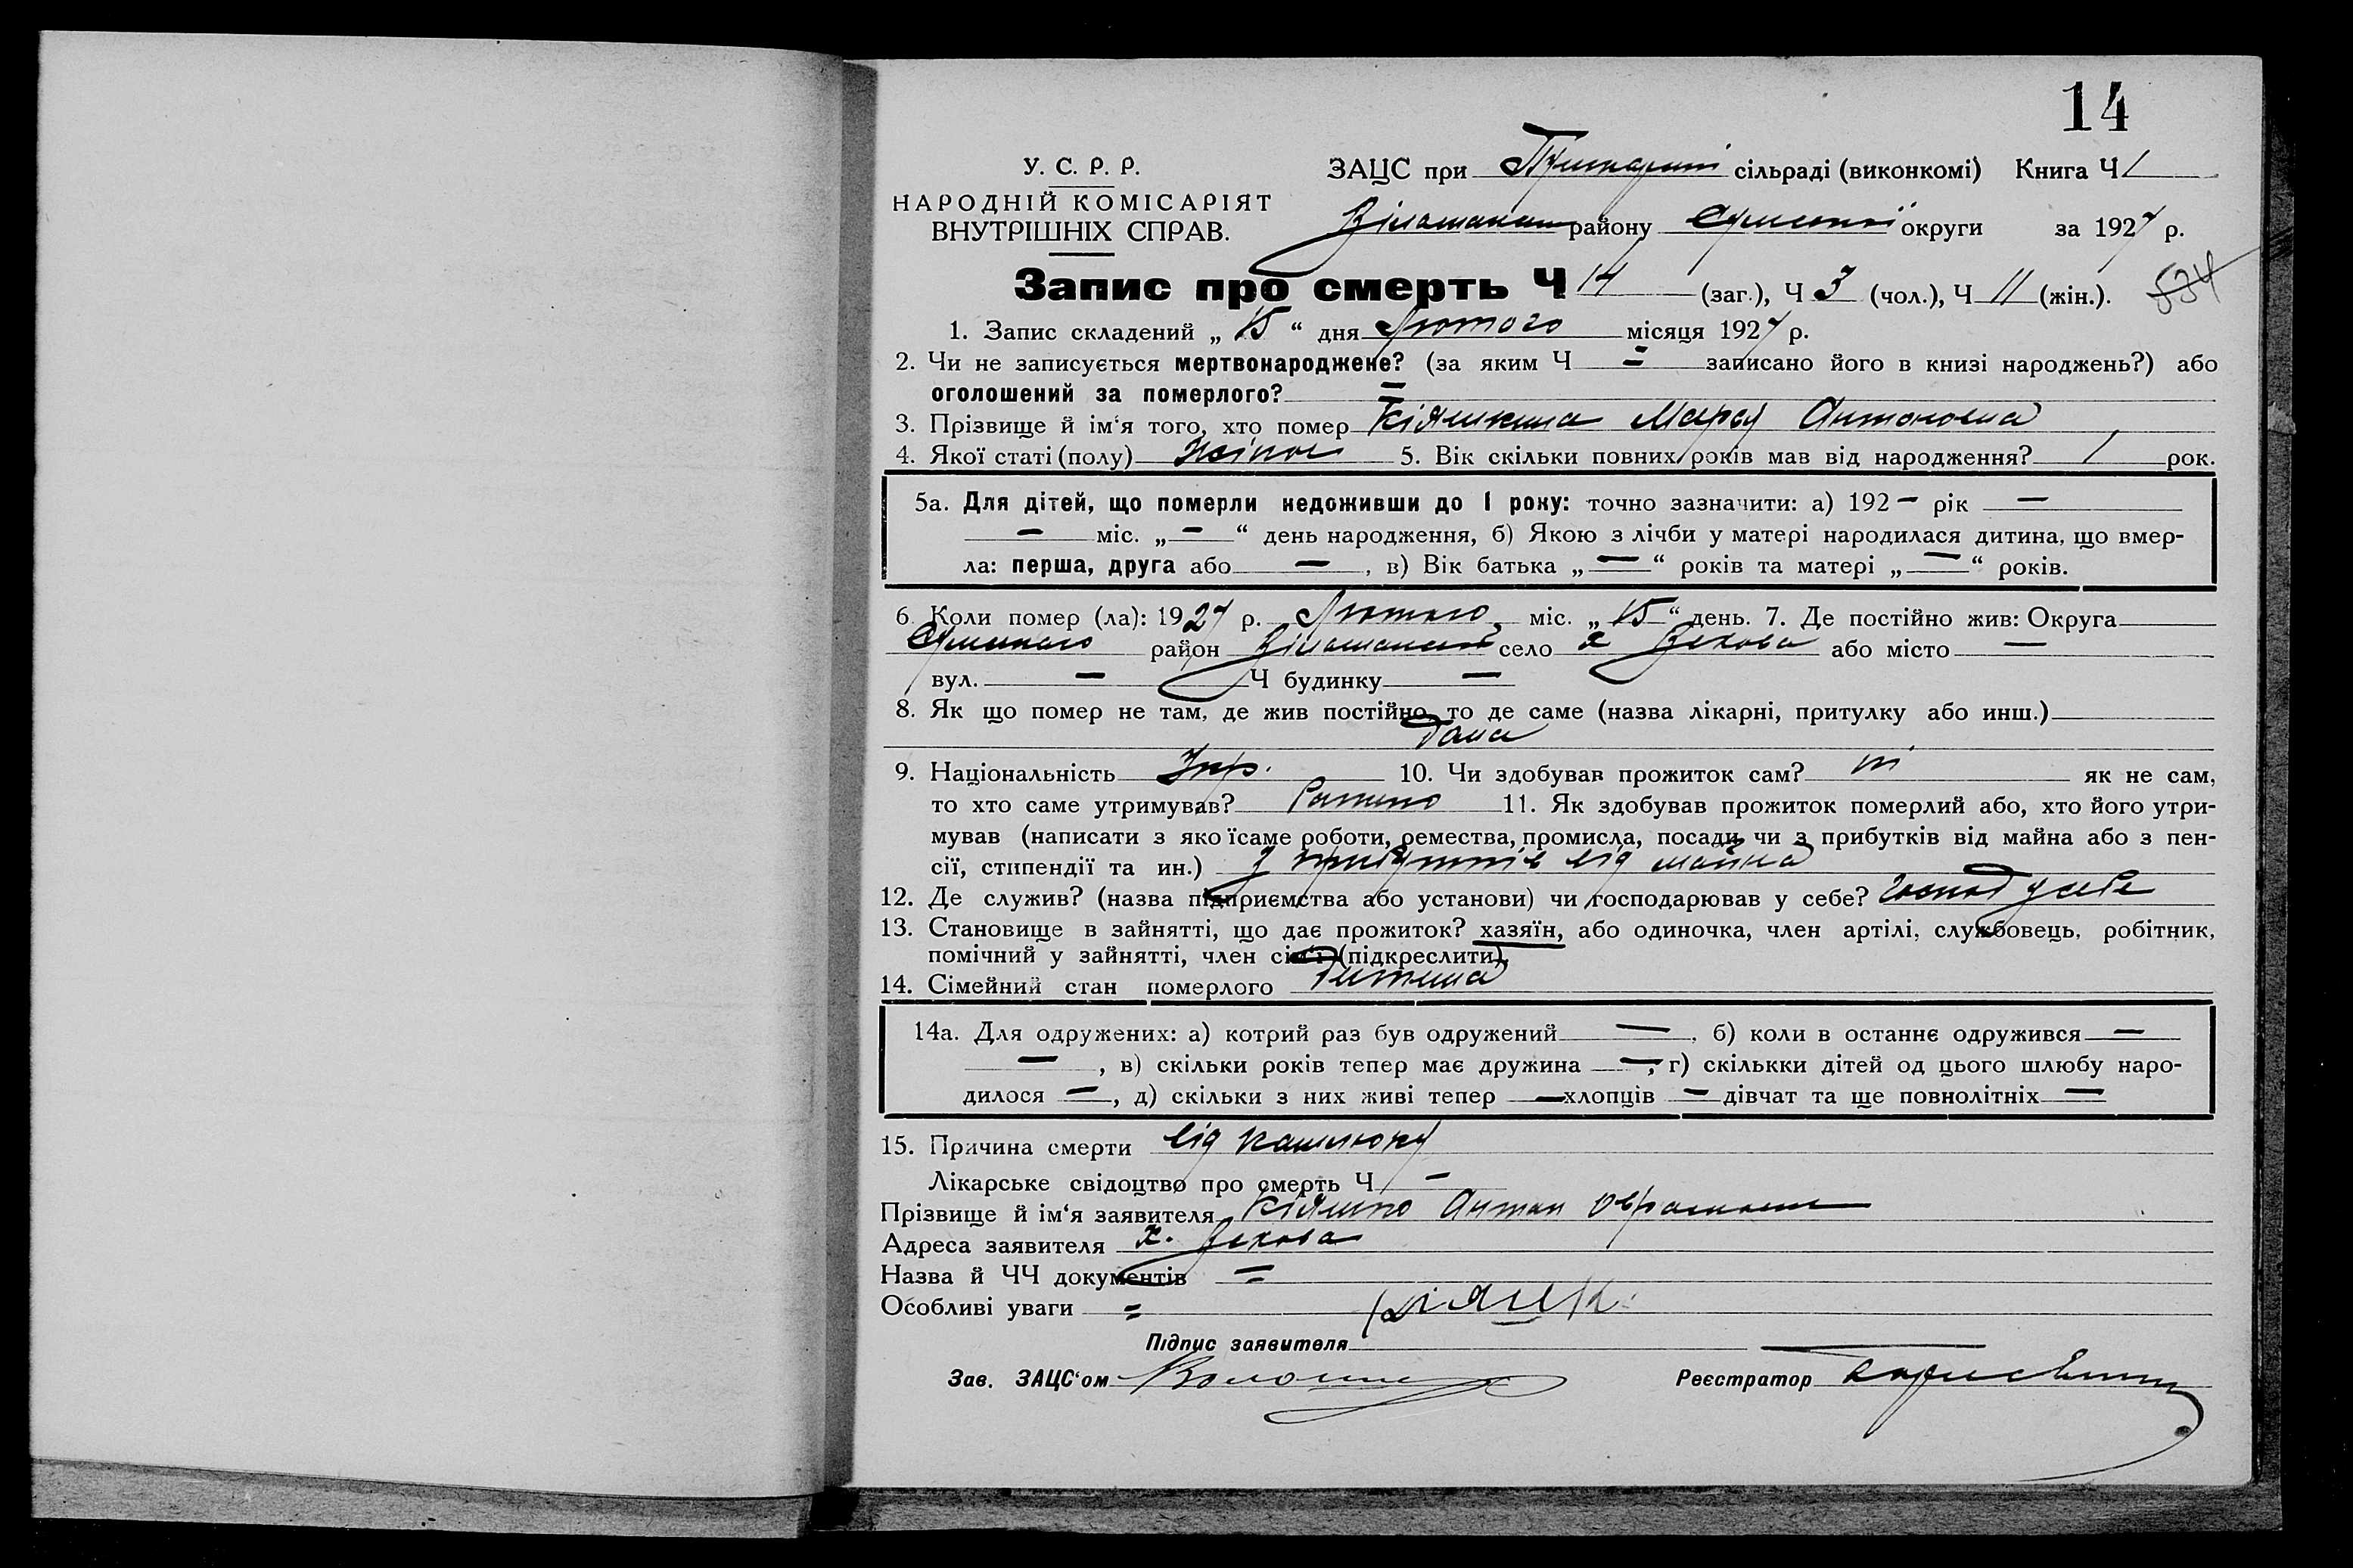 14
У. С. Р. Р.
НАРОДНІЙ КОМІСАРІЯТ
ВНУТРІШНІХ СПРАВ.
ЗАЦС при сільраді (виконкомі) Книга Ч 1
району Сумської округи за 1927 р.
Запис про смерть Ч 14 (заг.), Ч 3 (чол.), Ч 11 (жін.). 534
1. Запис складений „ 15 “ дня Лютого місяця 1927 р.
2. Чи не записується мертвонароджене? (за яким Ч = записано його в книзі народжень?) або
оголошений за померлого? =
3. Прізвище й ім‘я того, хто помер Кіяшкина Марья Антоновна
4. Якої статі (полу) Жіноч 5. Вік скільки повних років мав від народження? 1 рок.
5а. Для дітей, що померли недоживши до 1 року: точно зазначити: а) 192 – рік —
— міс. „ — “ день народження, б) Якою з лічби у матері народилася дитина, що вмер-
ла: перша, друга або — , в) Вік батька „ — “ років та матері „ — “ років.
6. Коли помер (ла): 1927 р. Лютого міс. „ 15 “ день. 7. Де постійно жив: Округа
Сумського район село х або місто —
вул. — Ч будинку —
8. Як що помер не там, де жив постійно, то де саме (назва лікарні, притулку або инш.)
дома
9. Національність Укр. 10. Чи здобував прожиток сам? ні як не сам,
то хто саме утримував? 11. Як здобував прожиток померлий або, хто його утри-
мував (написати з яко їсаме роботи, ремества, промисла, посади чи з прибутків від майна або з пен-
сії, стипендії та ин.) З прибутків від майна
12. Де служив? (назва підприємства або установи) чи господарював у себе? Господ у себе
13. Становище в зайнятті, що дає прожиток? хазяїн, або одиночка, член артілі, службовець, робітник,
помічний у зайнятті, член сім‘ї (підкреслити).
14. Сімейний стан померлого дитина
14а. Для одружених: а) котрий раз був одружений — , б) коли в останнє одружився —
— , в) скільки років тепер має дружина — , г) скількки дітей од цього шлюбу наро-
дилося — , д) скільки з них живі тепер — хлопців — дівчат та ще повнолітніх —
15. Причина смерти від кашлюку
Лікарське свідоцтво про смерть Ч –
Прізвище й ім‘я заявителя Кіяшко Антон
Адреса заявителя х.
Назва й ЧЧ документів =
Особливі уваги =
Підпис заявителя
Зав. ЗАЦС‘ом
Реєстратор